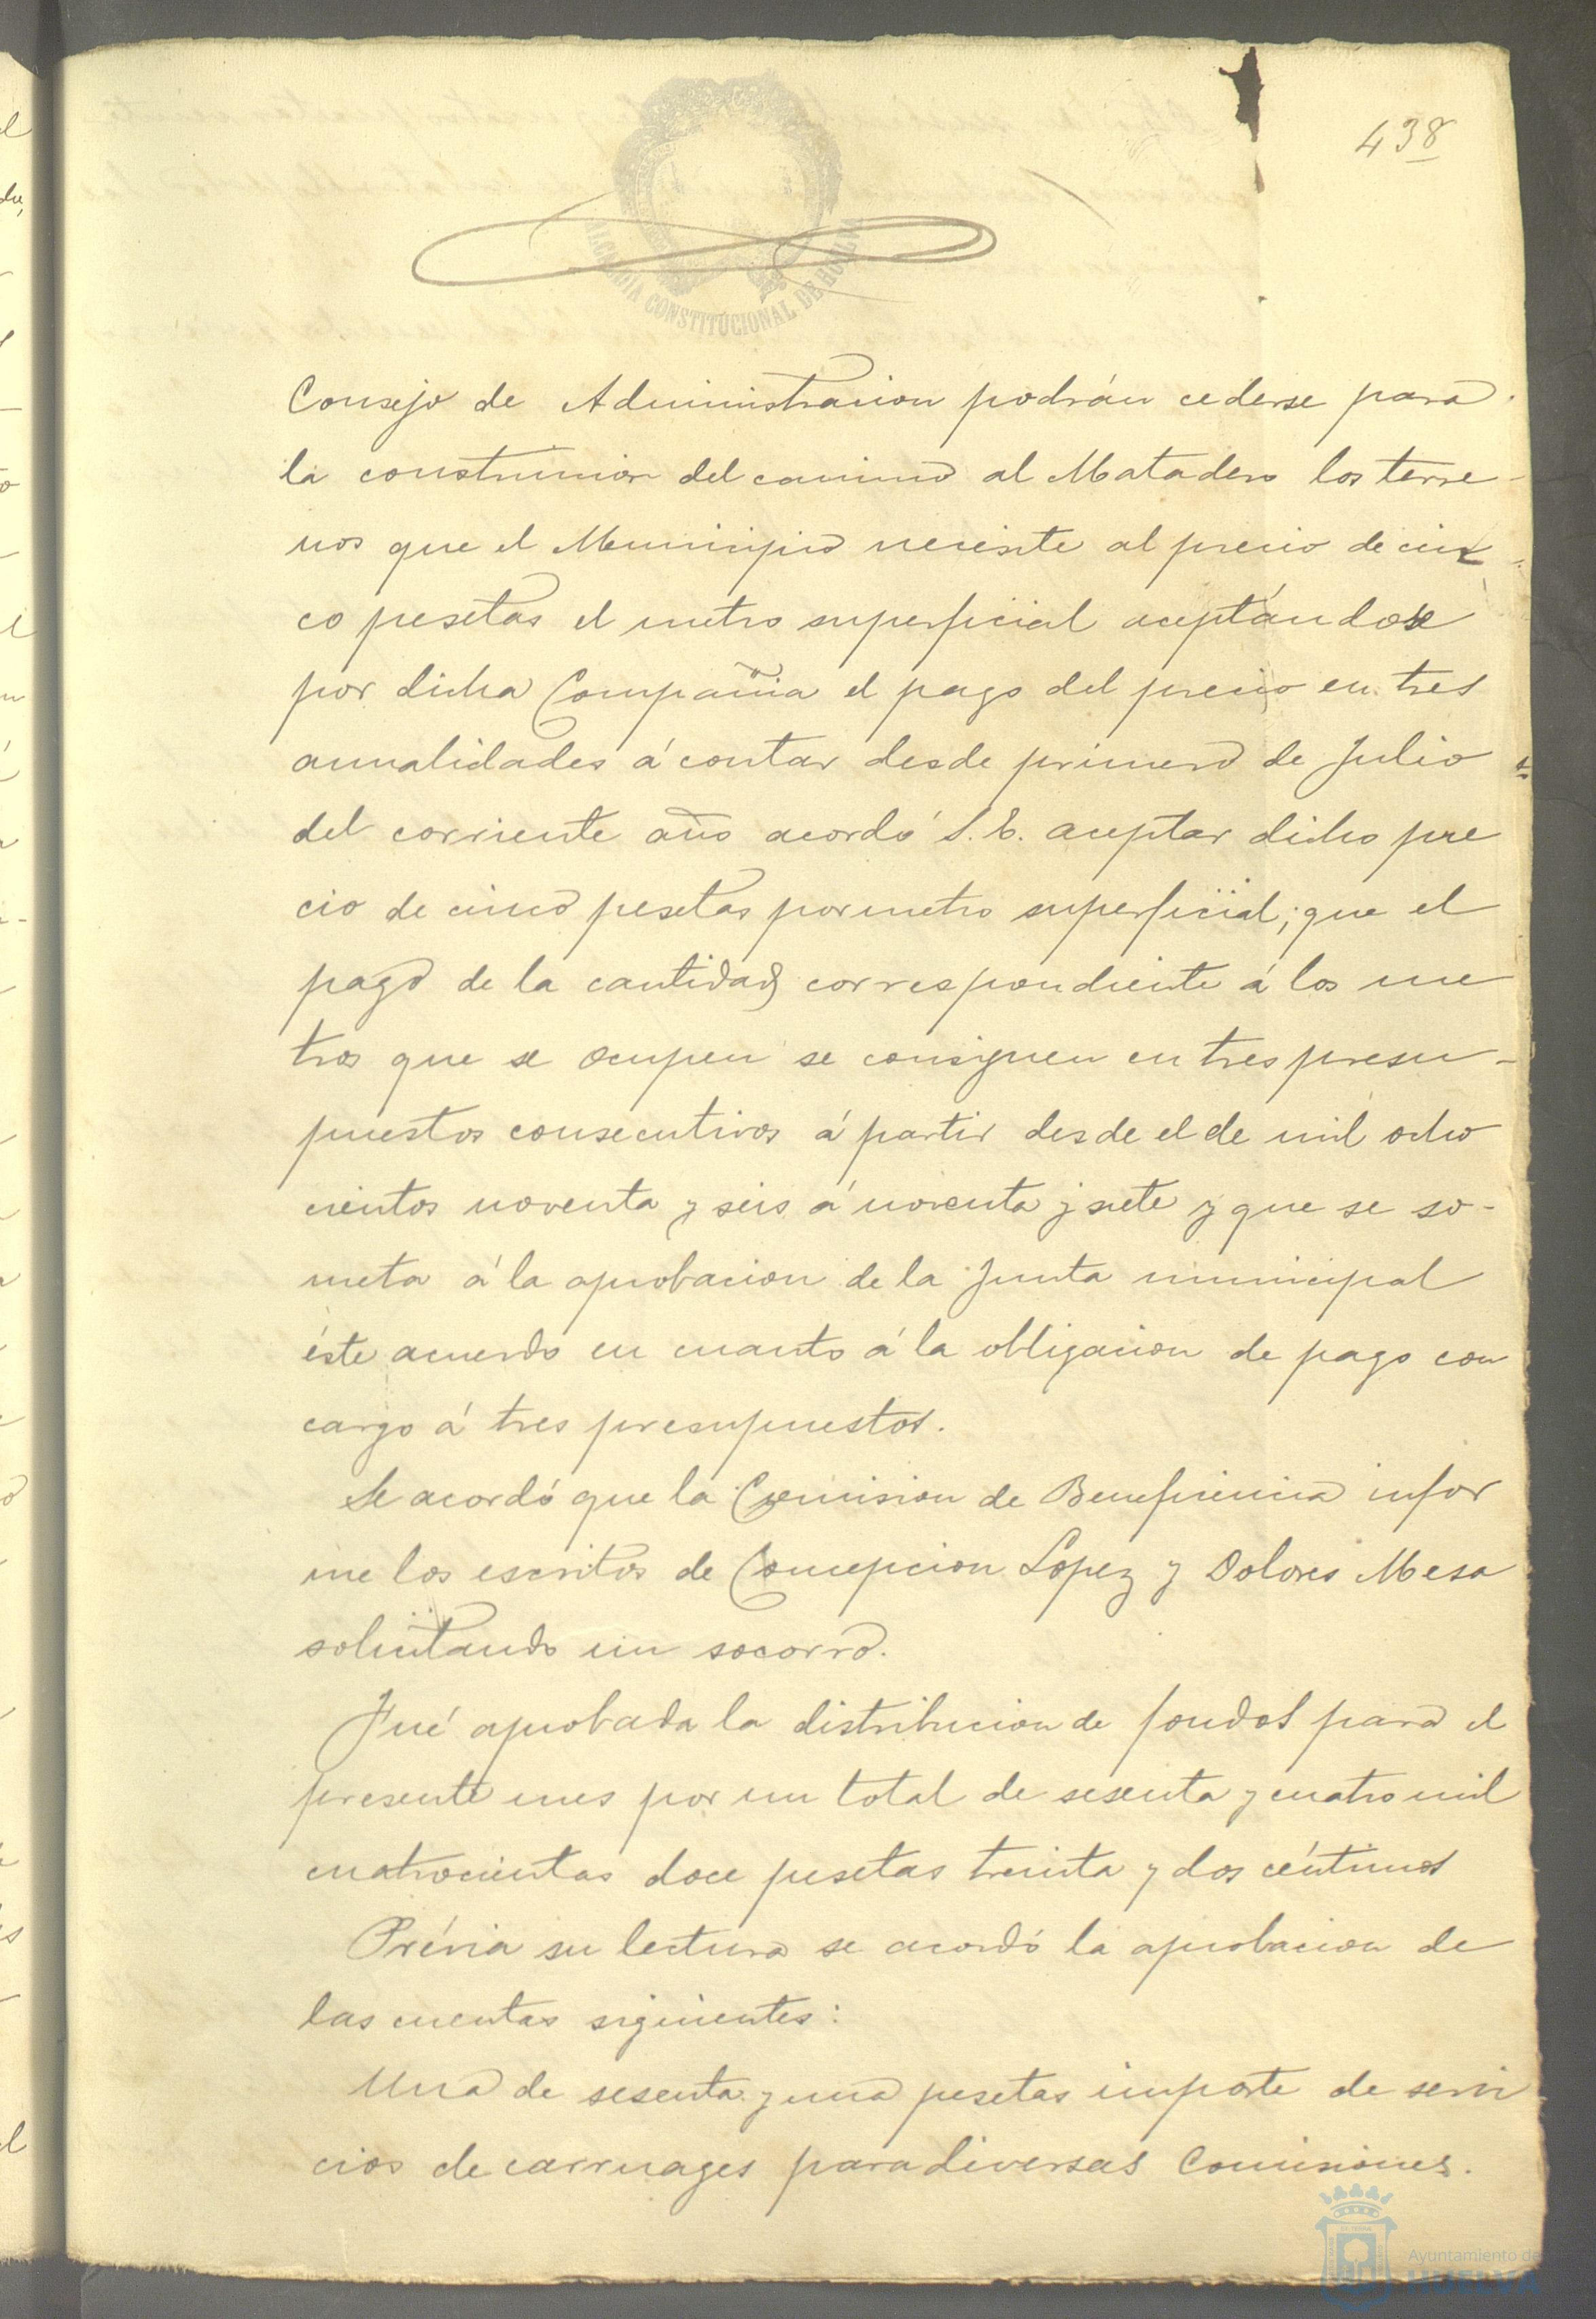 438
ALCALDÍA CONSTITUCIONAL DE HUELVA
Consejo de Administracion podrán cederse para
la construccion del camino al Matadero los terre-
nos que el Municipio necesite al precio de cin-
co pesetas el metro superficial aceptándose
por dicha Compañia el pago del precio en tres
anualidades á contar desde primero de Julio
del corriente año acordó S. E. aceptar dicho pre
cio de cinco pesetas por metro superficial; que el
pago de la cantidad correspondiente á los me
tros que se ocupen se consignen en tres presu-
puestos consecutivos á partir desde el de mil ocho
cientos noventa y seis á noventa y siete y que se so-
meta á la aprobacion de la Junta municipal
éste acuerdo en cuanto á la obligacion de pago con
cargo á tres presupuestos.
Se acordó que la Comision de Beneficencia infor
me los escritos de Concepcion Lopez y Dolores Mesa
solicitando un socorro.
Fué aprobada la distribucion de fondos para el
presente mes por un total de sesenta y cuatro mil
cuatrocientas doce pesetas treinta y dos céntimos
Prévia su lectura se acordó la aprobacion de
las cuentas siguientes:
Una de sesenta y una pesetas importe de servi
cios de carruages para diversas Comisiones.
Ayuntamiento de
HUELVA